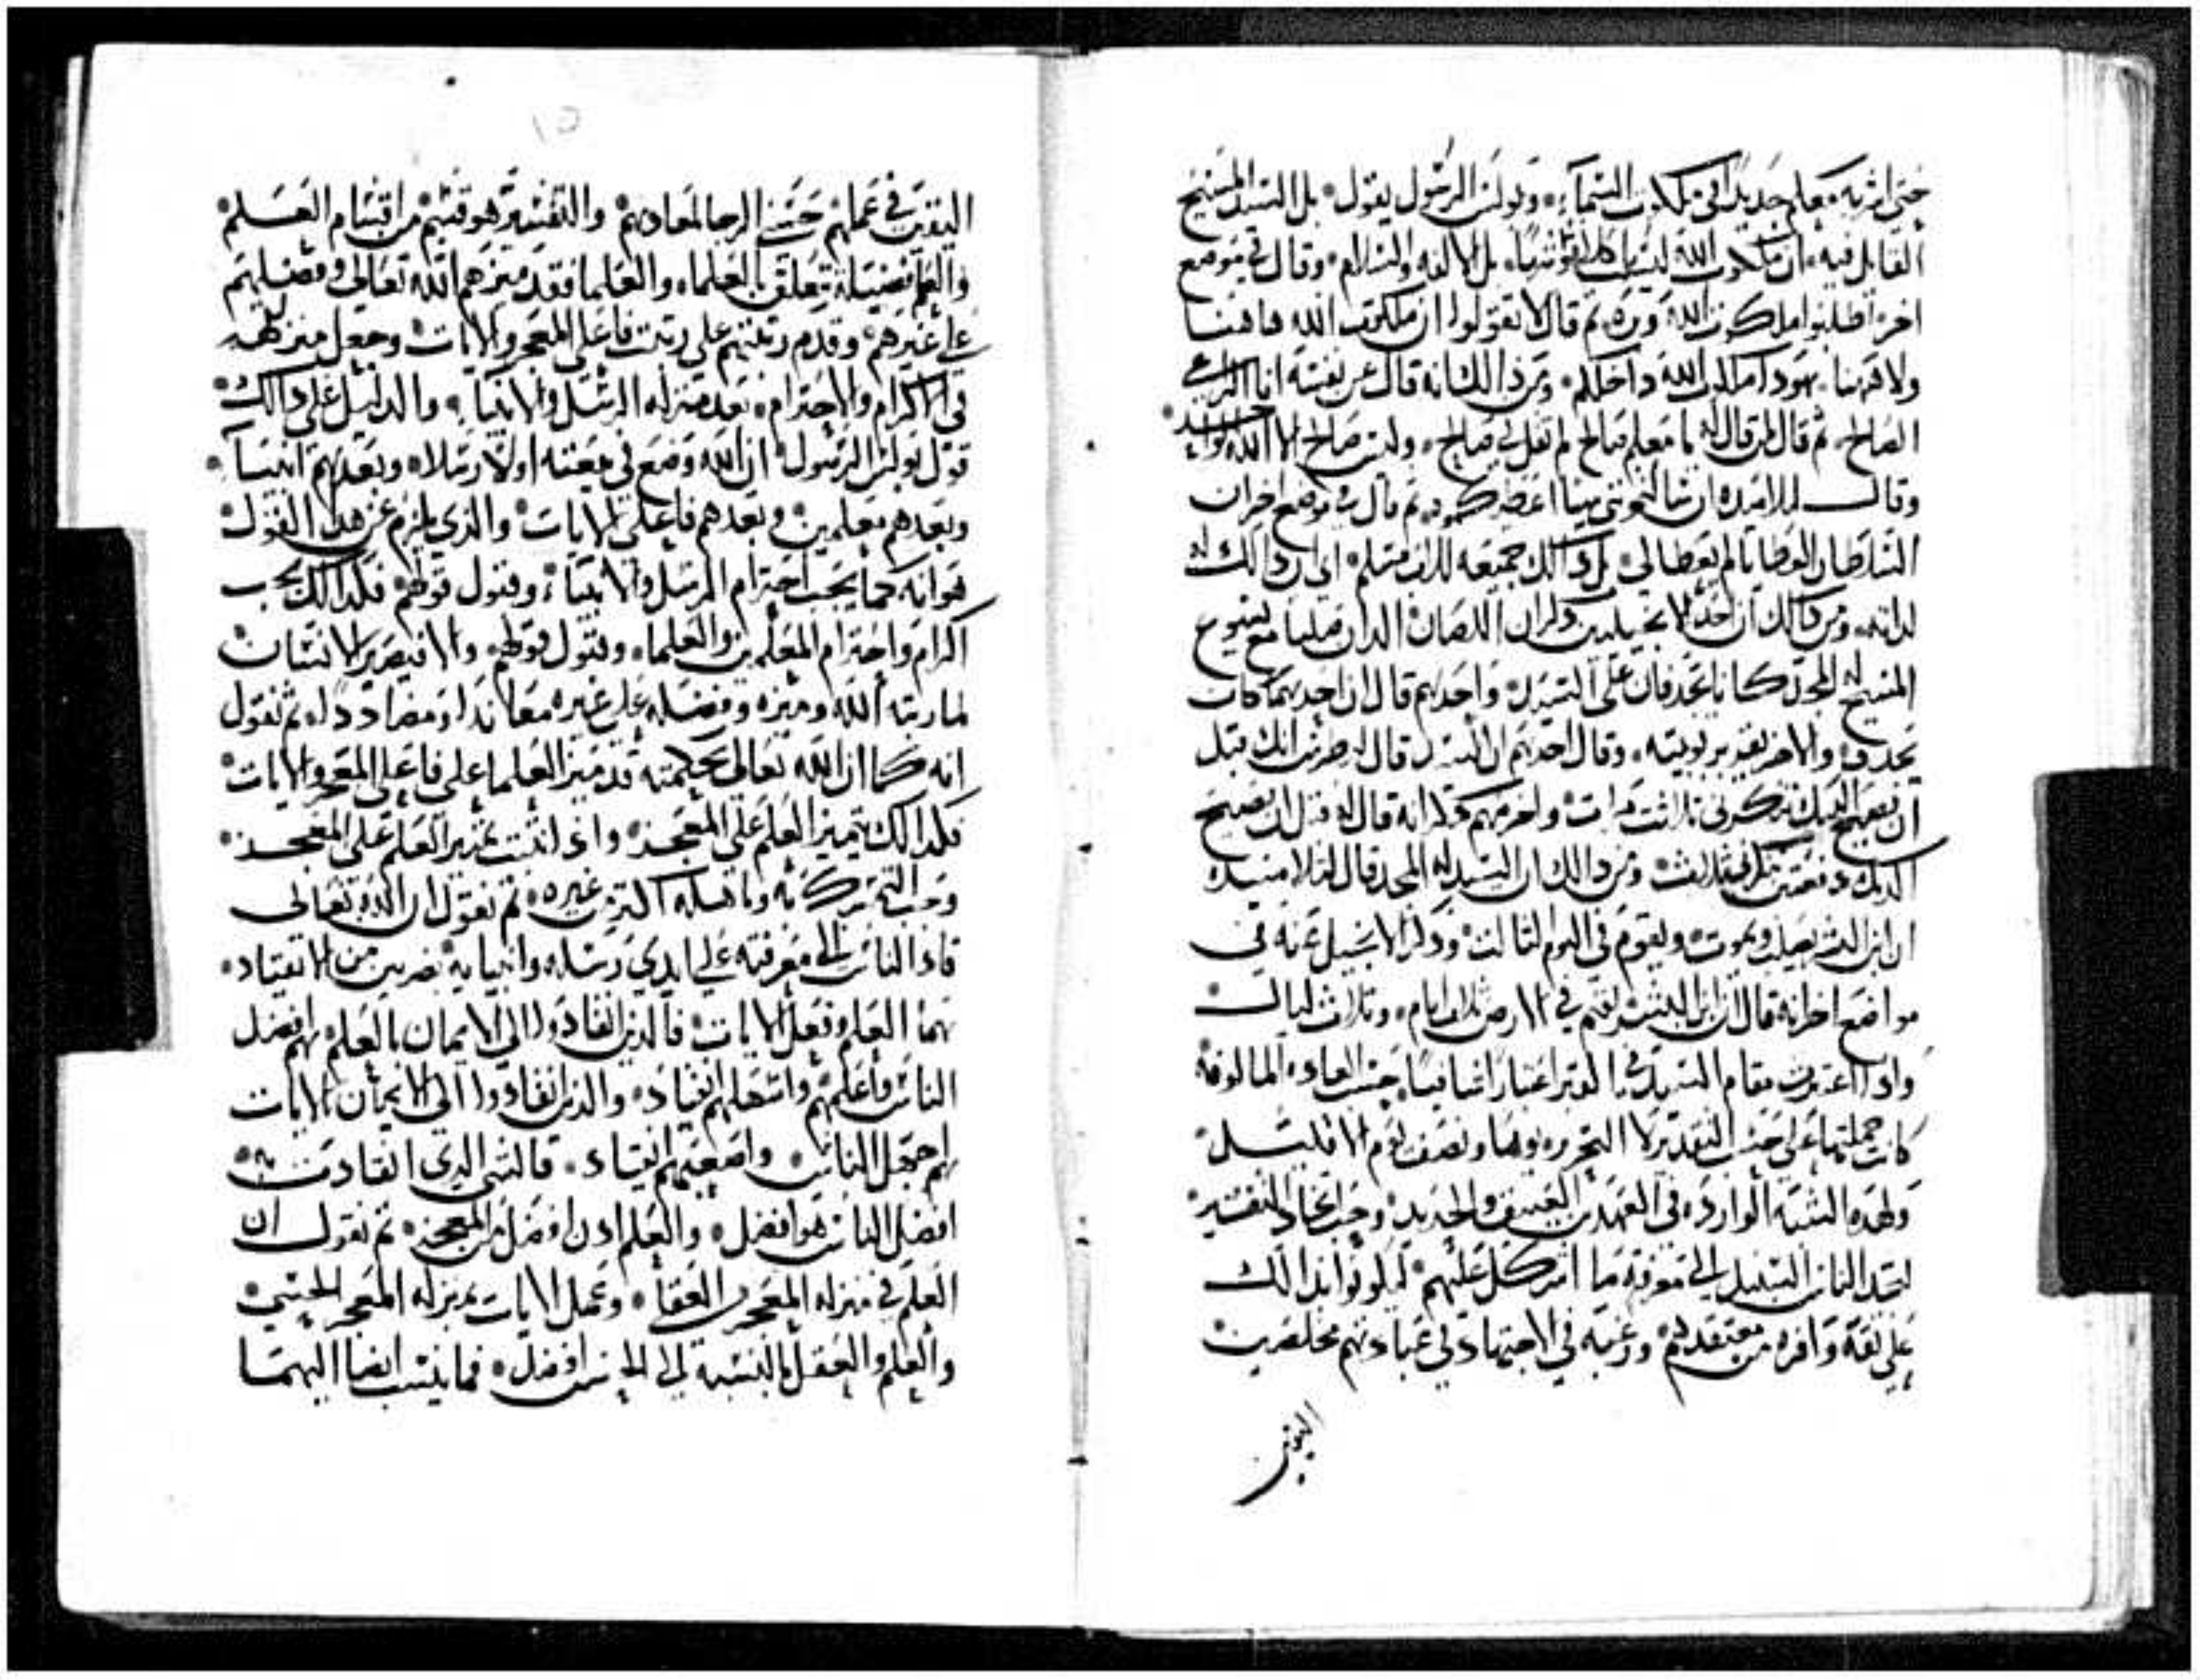 حتى اشربه معكم جديدًا في ملكوت السماء، وبولس الرسول يقول بل السيد المسيح
القايل فيه ان ملكوت الله ليس اكلا وشربا، بل الالفه والسلام، وقال في موضع
اخر اطلبوا ملكوت الله وبره، ثم قال لا تقولوا ان ملكوت الله هاهنا
ولا هاهنا هودا ملكوت الله داخلكم، ومن دالك انه قال عن نفسه انا الراعي
الصالح، ثم قال لمن قال له يا معلم صالح لم تقل لي صالح، وليس صالح الا الله الواحد
وقال لتلاميده ان سالتموني شيا اعطيكموه، ثم قال في موضع اخر ان
العطا لم يعطا لي بل دالك جميعه للاب
لدالك، ومن دالك ان احد الانجيليين دكر ان اللصان الدان صلبا مع يسوع
المسيح له المجد كانا يجدفان على السيد، واحدهم قال ان احدهما كان
يجدف والاخر يقر بربوبيته، وقال احدهم ان السيد قال لبطرس انك قبل
ان يصيح الديك تنكرني ثلاثت مرات، واخر منهم دكر انه قال له قبل ان يصيح
الديك دفعتين تنكرني ثلاث، ومن دالك ان السيد له المجد قال لتلاميده
ان ابن البشر يصلب ويموت، ويقوم في اليوم الثالث، ودكر الانجيل عنه في
مواضع اخر انه قال ان ابن البشر يقيم في الارض ثلاث ايام، وثلاث ليال
وادا اعتبرت مقام السيد في القبر اعتبارًا انسانيًا، حسب العاده المالوفه
كانت جملتها على حسب التقدير لا التحرير يوما ونصف يوم الا قليل
ولهده الشبه الوارده في العهدين العتيق والجديد، وجب اتخاد التفسير
ليجد الناس السبيل الى معرفة ما اشكل عليهم، ليكونوا بدالك
على ثقة وافره من معتقدهم، ورغبه في الاجتهاد في عباداتهم مخلصين
اليقين
١٥
اليقين في عملهم حسن الرجا لمعادهم، والتفسير هو قسم من اقسام العلم
والعلم فضيلة تتعلق بالعلماء، والعلما فقد ميزهم الله تعالى وفضلهم
على غيرهم، وقدم رتبتهم على رتبت فاعلي المعجز والايات، وجعل منزلتهم
في الاكرام والاحترام، بعد منزله الرسل والانبياء، والدليل على دالك
قول بولس الرسول ان الله وضع في بيعته اولاً رسلا، وبعدهم انبيآ
وبعدهم معلمين، وبعدهم فاعلي الايات، والذي يلزم عن هدا القول
هو انه كما يجب احترام الرسل والانبياء، وقبول قولهم، فكدالك يجب
اكرام واحترام المعلمين والعلماء، وقبول قولهم، والا فيصير الانسان
لما رتبه الله وميزه وفضله على غيره معاندا ومضاددا له، ثم نقول
انه كما ان الله تعالى بحكمته قد ميز العلما على فاعلي المعجز والايات
فكدالك تميز العلم على المعجز، وادا ثبت تمييز العلم على المعجز
وجب التمسك به وتاهيله اكثر من غيره، ثم نقول ان الله تعالى
قاد الناس الى معرفته على ايدي رسله وانبيايه بضربين من الانقياد
هما العلم وفعل الايات، فالدين انقادوا الى الايمان بالعلم هم افضل
الناس واعلمهم واسهلهم انقيادا، والدين انقادوا الى الايمان بالايات
هم اجهل الناس واصعبهم انقياد، فالشي الدي انقادت به
افضل الناس هو افضل، والعلم ادن افضل من المعجز، ثم نقول ان
العلم في منزله المعجز العقلي، وعمل الايات بمنزله المعجز الحسي
والعلم والعقل بالنسبة الى الحس افضل، فما ينسب ايضا اليهما